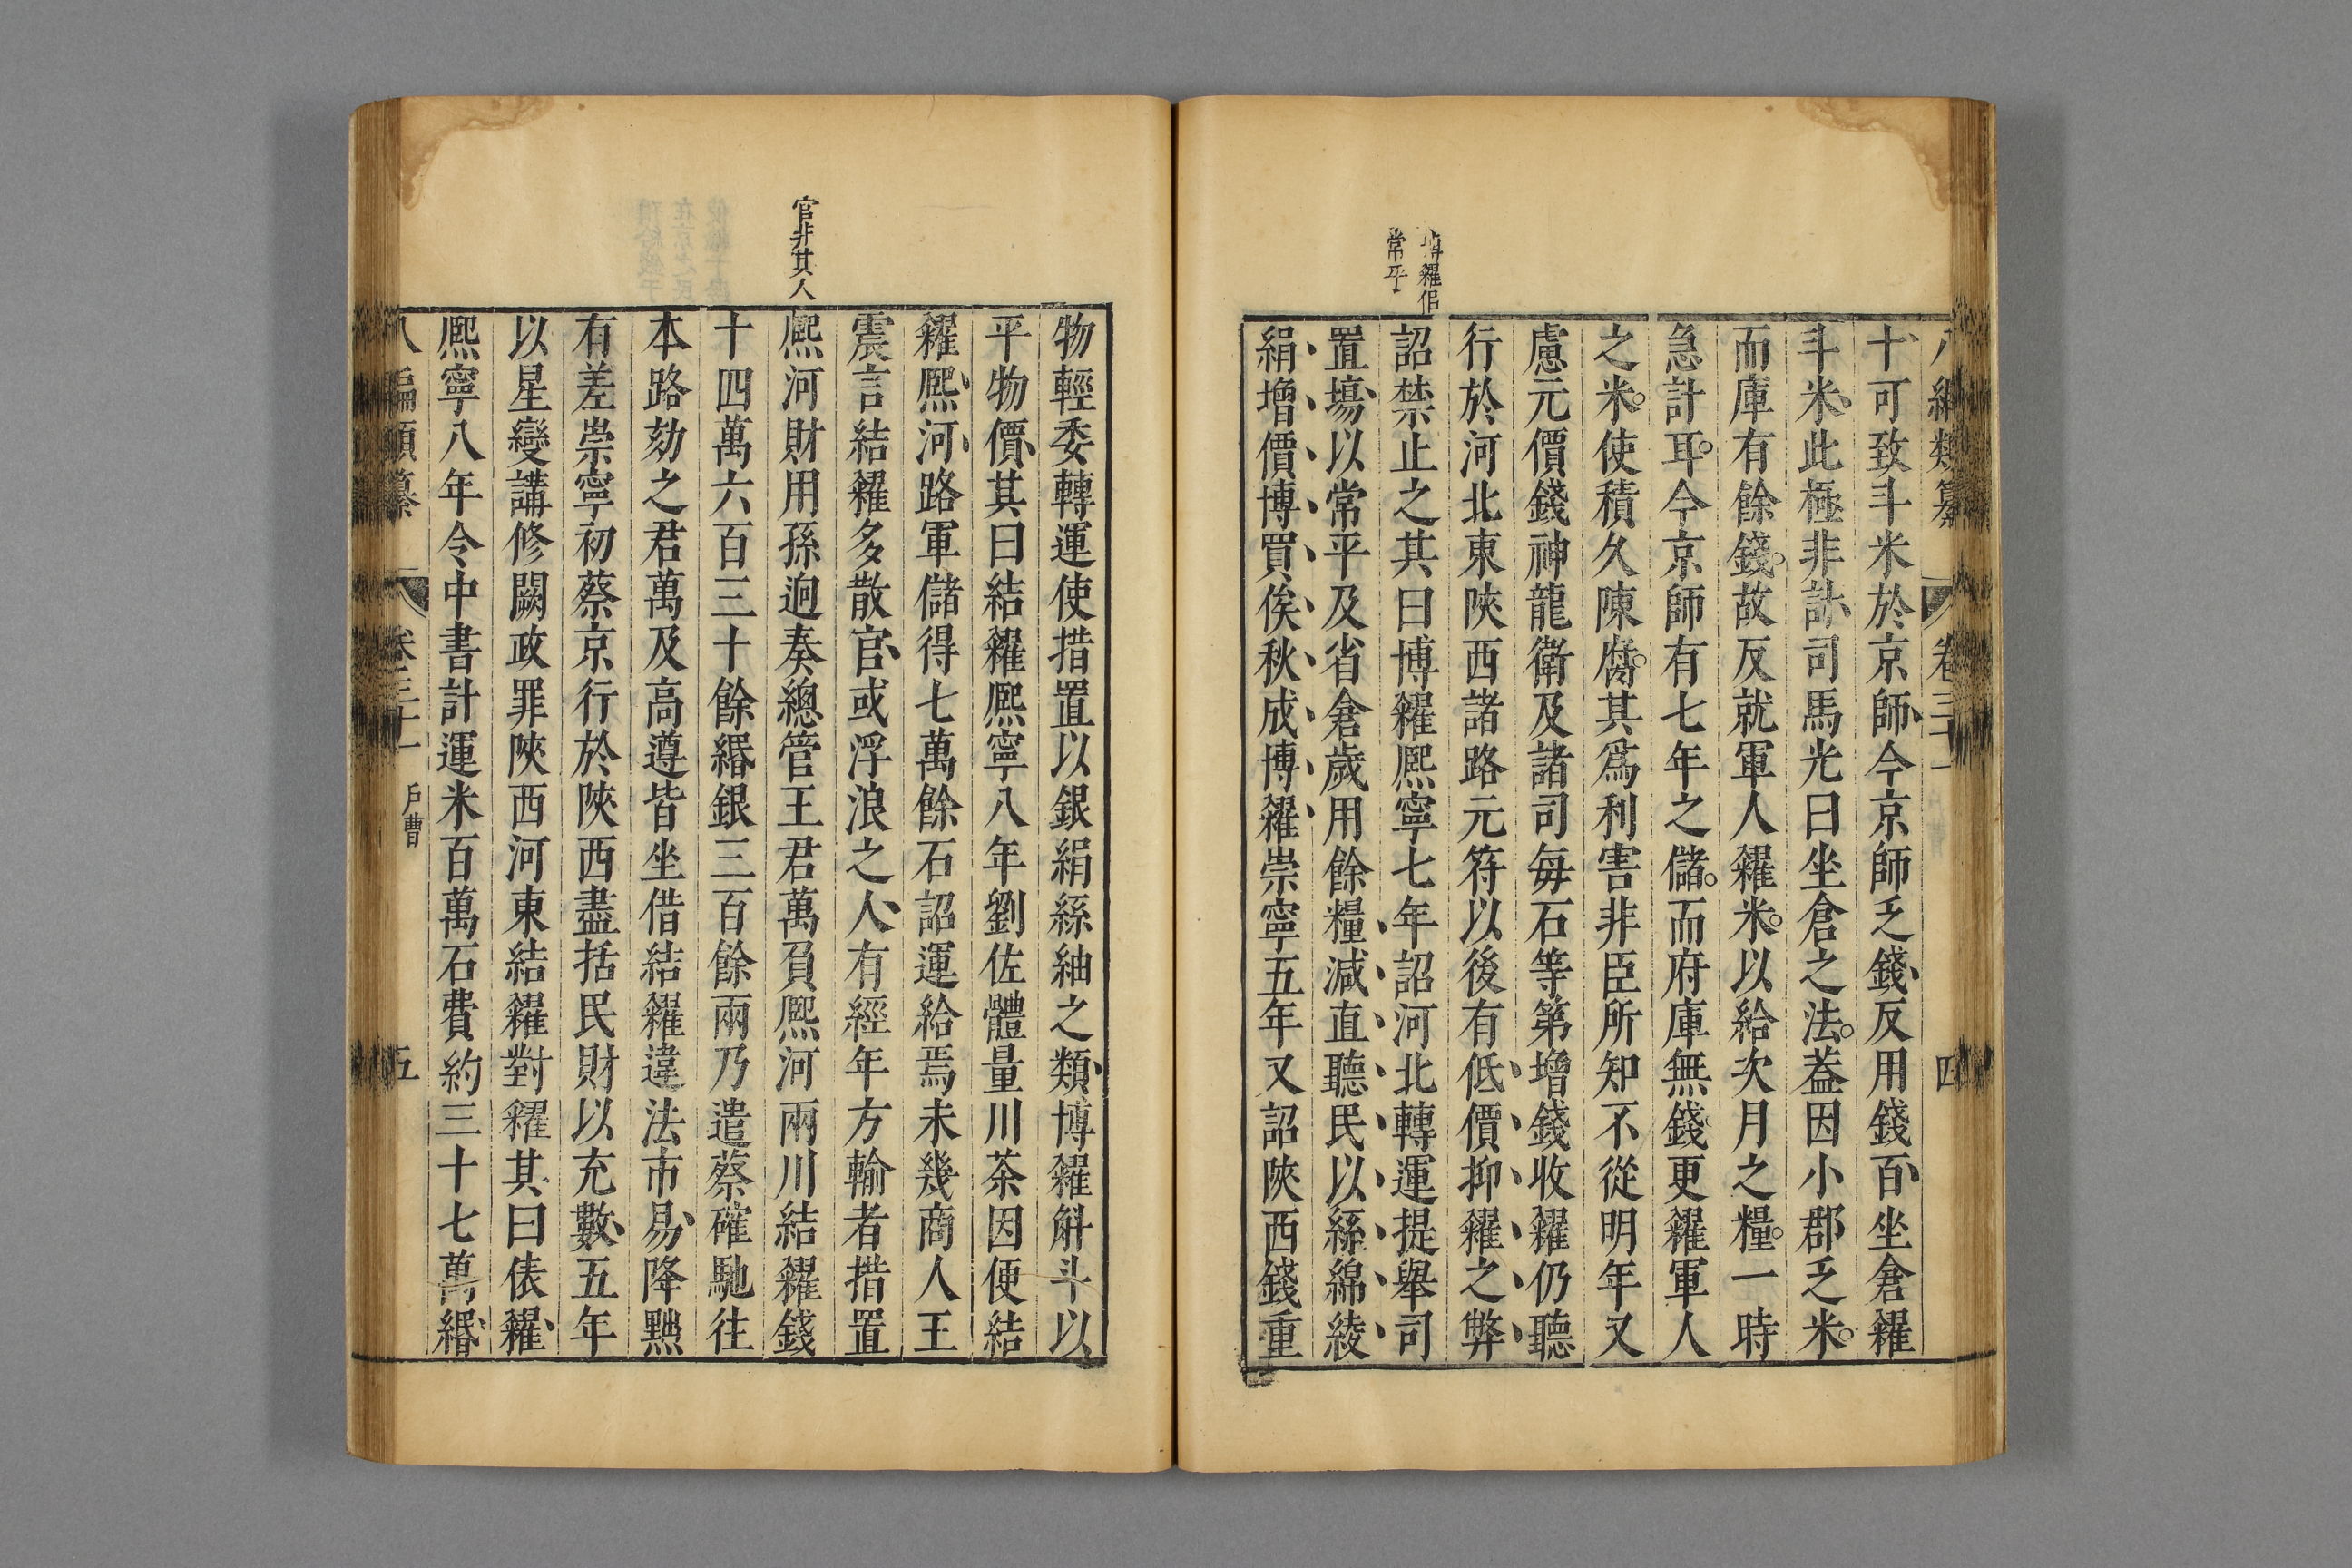 八編類纂 卷三十一 四
十可致斗米於京師今京師乏錢反用錢百坐倉糴
斗米此極非計司馬光曰坐倉之法葢因小郡乏米
而庫有餘錢故反就軍人糴米以給次月之糧一時
急計耳今京師有七年之儲而府庫無錢更糴軍人
之米使積久陳腐其爲利害非臣所知不從明年又
慮元價錢神龍衛及諸司每石等第增錢收糴仍聽
行於河北東陝西諸路元符以後有低價抑糴之弊
博糴佀
常平
詔禁止之其曰博糴熈寧七年詔河北轉運提舉司
置塲以常平及省倉歲用餘糧減直聽民以絲綿綾
絹增價博買俟秋成博糴崇寧五年又詔陝西錢重
物輕委轉運使措置以銀絹絲紬之類博糴斛斗以
平物價其曰結糴熈寧八年劉佐體量川茶因便結
糴熈河路軍儲得七萬餘石詔運給焉未幾商人王
震言結糴多散官或浮浪之人有經年方輸者措置
官非其人
熈河財用孫迥奏總管王君萬負熈河兩川結糴錢
十四萬六百三十餘緡銀三百餘兩乃遣蔡確馳往
本路劾之君萬及高遵皆坐借結糴違法市易降黜
有差崇寧初蔡京行於陝西盡括民財以充數五年
以星變講修闕政罪陝西河東結糴對糴其曰俵糴
熈寧八年令中書計運米百萬石費約三十七萬緡
八編類纂 卷三十一 戶曹 五